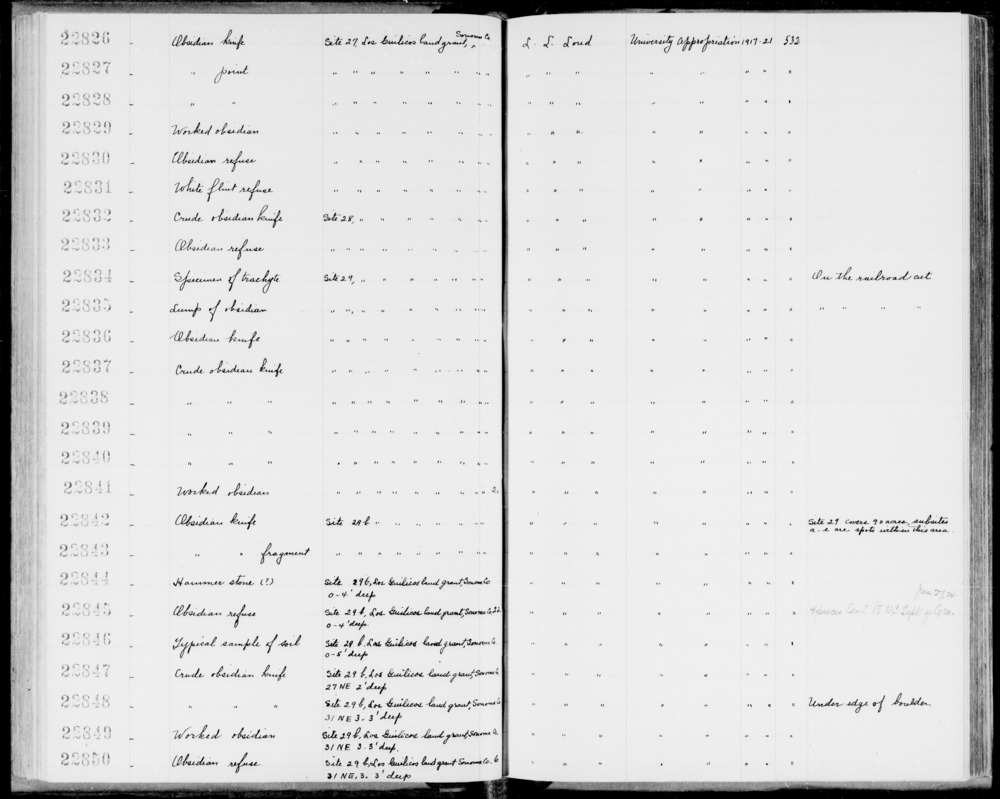 22826 - Obsidian knife Site 27, Los Guilicos land grant, Sonoma Co L. L. Loud University Appropriation 1917-21 532
22827 - " point " " " " " " " " " " " " " " " "
22828 - " " " " " " " " " " " " " " " " " "
22829 - Worked obsidian " " " " " " " " " " " " " " " "
22830 - Obsidian refuse " " " " " " " " " " " " " " " "
22831 - White flint refuse " " " " " " " " " " " " " " " "
22832 - Crude obsidian knife Site 28, " " " " " " " " " " " " " "
22833 - Obsidian refuse " " " " " " " " " " " " " " " "
22834 - Specimen of trachyte Site 29, " " " " " " " " " " " " " " On the railroad cut
22835 - Lump of obsidian " ", " " " " " " " " " " " " " " " " " "
22836 - Obsidian knife " " " " " " " " " " " " " " " "
22837 - Crude obsidian knife " " " " " " " " " " " " " " " "
22838 - " " " " " " " " " " " " " " " " " " "
22839 - " " " " " " " " " " " " " " " " " " "
22840 - " " " " " " " " " " " " " " " " " " "
22841 - Worked obsidian " " " " " " " " 2. " " " " " " " "
22842 - Obsidian knife Site 29 b " " " " " " " " " " " " " " Site 29 covers 90 acres, subsites
a - e are spots within this area
22843 - " " fragment " " " " " " " " " " " " " " " "
22844 - Hammer stone (?) Site 29 b, Los Guilicos land grant, Sonoma Co " " " " " " " "
0-4' deep
22845 - Obsidian refuse Site 29 b, Los Guilicos land grant, Sonoma Co. " " " " " " " " 4 pieces Sent to UC Dept of
0-4' deep
22846 - Typical sample of soil Site 29 b, Los Guilicos land grant, Sonoma Co " " " " " " " "
0-5' deep
22847 - Crude obsidian knife Site 29 b, Los Guilicos land grant, Sonoma Co " " " " " " " "
27 NE 2' deep
22848 - " " " Site 29 b, Los Guilicos land grant, Sonoma Co " " " " " " " " Under edge of boulder
31 NE 3. 3' deep
22849 - Worked obsidian Site 29 b, Los Guilicos land grant, Sonoma Co " " " " " " " "
31 NE 3. 3' deep.
22850 - Obsidian refuse Site 29 b, Los Guilicos land grant Sonoma Co. 6 " " " " " " " "
31 NE, 3. 3' deep